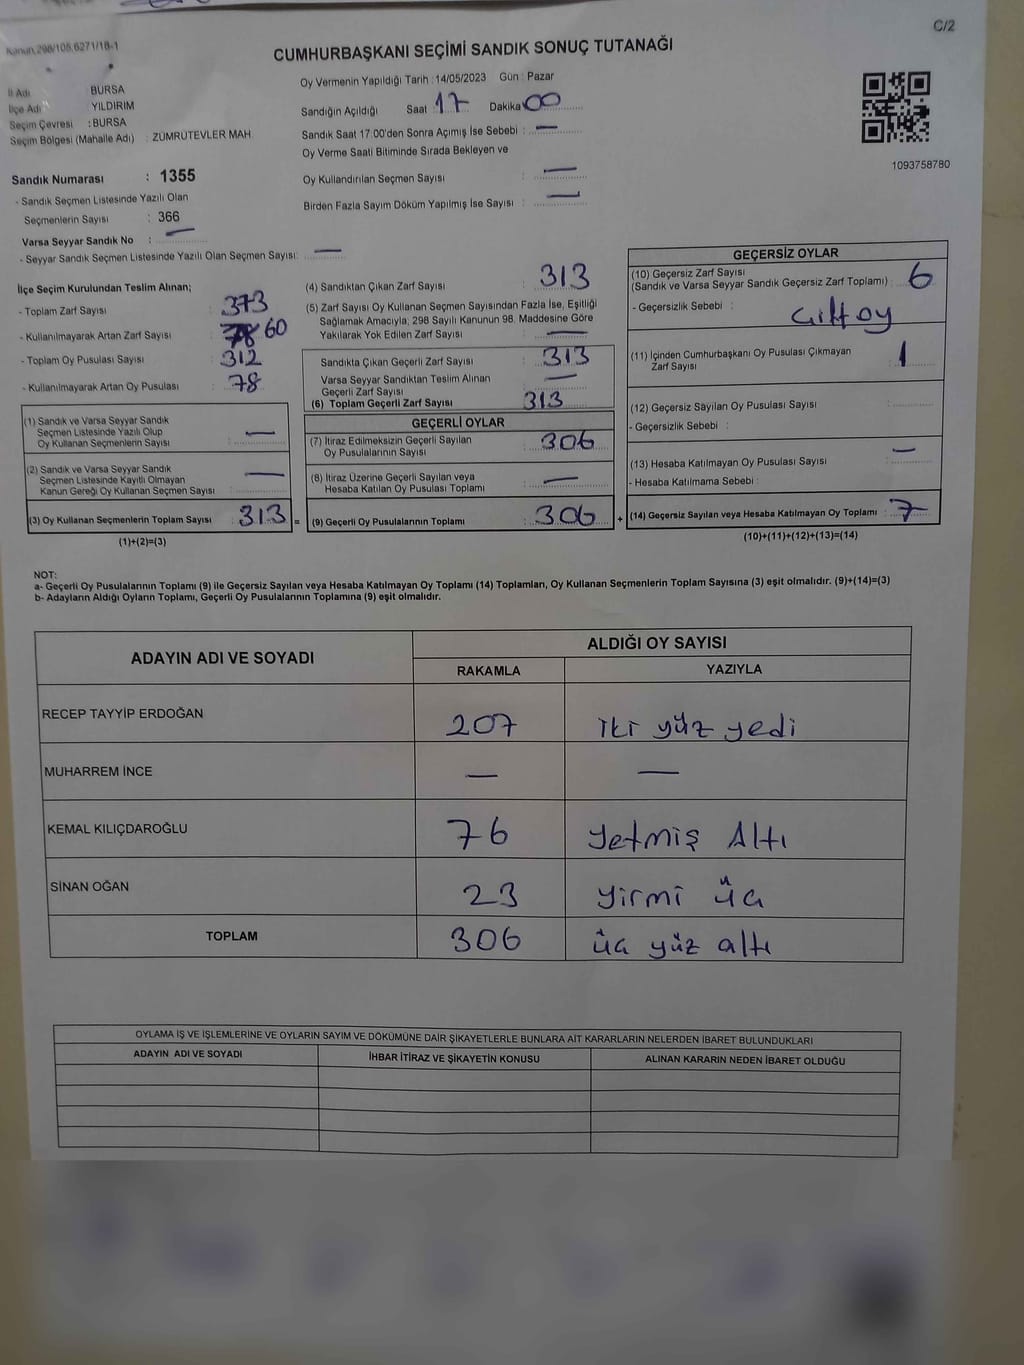 Kanun,298/105,6271/18-1
C/2
CUMHURBAŞKANI SEÇİMİ SANDIK SONUÇ TUTANAĞI
İl Adı : BURSA
İlçe Adı : YILDIRIM
Seçim Çevresi : BURSA
Seçim Bölgesi (Mahalle Adı) : ZÜMRÜTEVLER MAH.
Sandık Numarası : 1355
- Sandık Seçmen Listesinde Yazılı Olan
Seçmenlerin Sayısı : 366
Varsa Seyyar Sandık No : —
- Seyyar Sandık Seçmen Listesinde Yazılı Olan Seçmen Sayısı: —
Oy Vermenin Yapıldığı Tarih :14/05/2023 Gün : Pazar
Sandığın Açıldığı Saat 17 Dakika 00
Sandık Saat 17:00'den Sonra Açımış İse Sebebi : —
Oy Verme Saati Bitiminde Sırada Bekleyen ve
Oy Kullandırılan Seçmen Sayısı : —
Birden Fazla Sayım Döküm Yapılmış İse Sayısı : —
1093758780
İlçe Seçim Kurulundan Teslim Alınan;
- Toplam Zarf Sayısı : 373
- Kullanılmayarak Artan Zarf Sayısı : 60
- Toplam Oy Pusulası Sayısı : 312
- Kullanılmayarak Artan Oy Pusulası : 78
(1) Sandık ve Varsa Seyyar Sandık
Seçmen Listesinde Yazılı Olup
Oy Kullanan Seçmenlerin Sayısı : —
(2) Sandık ve Varsa Seyyar Sandık
Seçmen Listesinde Kayıtlı Olmayan
Kanun Gereği Oy Kullanan Seçmen Sayısı : —
(3) Oy Kullanan Seçmenlerin Toplam Sayısı : 313 =
(1)+(2)=(3)
(4) Sandıktan Çıkan Zarf Sayısı : 313
(5) Zarf Sayısı Oy Kullanan Seçmen Sayısından Fazla İse, Eşitliği
Sağlamak Amacıyla, 298 Sayılı Kanunun 98. Maddesine Göre
Yakılarak Yok Edilen Zarf Sayısı : —
Sandıkta Çıkan Geçerli Zarf Sayısı : 313
Varsa Seyyar Sandıktan Teslim Alınan
Geçerli Zarf Sayısı : —
(6) Toplam Geçerli Zarf Sayısı : 313
GEÇERLİ OYLAR
(7) İtiraz Edilmeksizin Geçerli Sayılan
Oy Pusulalarının Sayısı : 306
(8) İtiraz Üzerine Geçerli Sayılan veya
Hesaba Katılan Oy Pusulası Toplamı : —
(9) Geçerli Oy Pusulalarının Toplamı : 306 +
GEÇERSİZ OYLAR
(10) Geçersiz Zarf Sayısı
(Sandık ve Varsa Seyyar Sandık Geçersiz Zarf Toplamı) : 6
- Geçersizlik Sebebi : çift oy
(11) İçinden Cumhurbaşkanı Oy Pusulası Çıkmayan
Zarf Sayısı : 1
(12) Geçersiz Sayılan Oy Pusulası Sayısı :
- Geçersizlik Sebebi :
(13) Hesaba Katılmayan Oy Pusulası Sayısı : —
- Hesaba Katılmama Sebebi :
(14) Geçersiz Sayılan veya Hesaba Katılmayan Oy Toplamı : 7
(10)+(11)+(12)+(13)=(14)
NOT:
a- Geçerli Oy Pusulalarının Toplamı (9) ile Geçersiz Sayılan veya Hesaba Katılmayan Oy Toplamı (14) Toplamları, Oy Kullanan Seçmenlerin Toplam Sayısına (3) eşit olmalıdır. (9)+(14)=(3)
b- Adayların Aldığı Oyların Toplamı, Geçerli Oy Pusulalarının Toplamına (9) eşit olmalıdır.
ADAYIN ADI VE SOYADI
ALDIĞI OY SAYISI
RAKAMLA YAZIYLA
RECEP TAYYİP ERDOĞAN 207 iki yüz yedi
MUHARREM İNCE — —
KEMAL KILIÇDAROĞLU 76 yetmiş Altı
SİNAN OĞAN 23 yirmi üç
TOPLAM 306 üç yüz altı
OYLAMA İŞ VE İŞLEMLERİNE VE OYLARIN SAYIM VE DÖKÜMÜNE DAİR ŞİKAYETLERLE BUNLARA AİT KARARLARIN NELERDEN İBARET BULUNDUKLARI
ADAYIN ADI VE SOYADI İHBAR İTİRAZ VE ŞİKAYETİN KONUSU ALINAN KARARIN NEDEN İBARET OLDUĞU